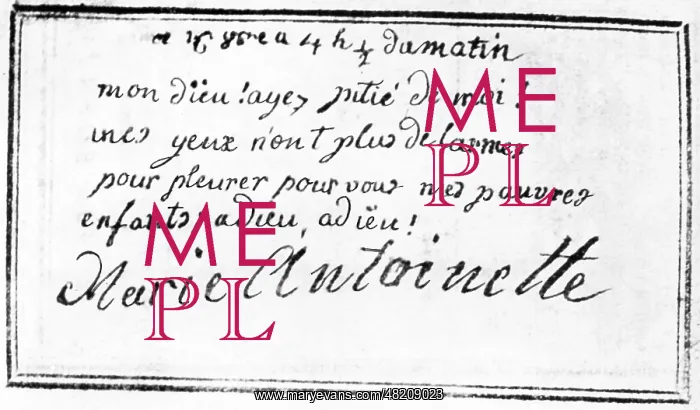 ce 16 8bre a 4 h ½ du matin
mon dieu ! ayez pitié de moi !
mes yeux n'ont plus de larmes
pour pleurer pour vous mes pauvres
enfants adieu, adieu !
Marie Antoinette
ME
PL
ME
PL
www.maryevans.com/48209023